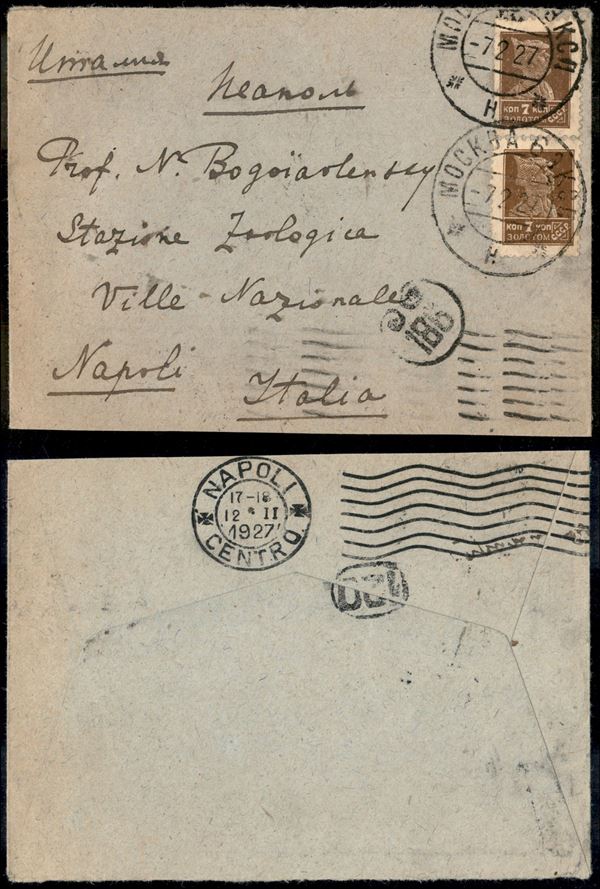 Италия
Неаполь
Prof. N. Bogoïavlensky
Stazione Zoologica
Ville Nazionale
Napoli Italia
МОСКВА
-7.2.27
Н
КОП 7 КОП
ЗОЛОТОМ
СССР
МОСКВА
-7.2.27
Н
КОП 7 КОП
ЗОЛОТОМ
СССР
186
NAPOLI
17-18
12 II
1927
CENTRO